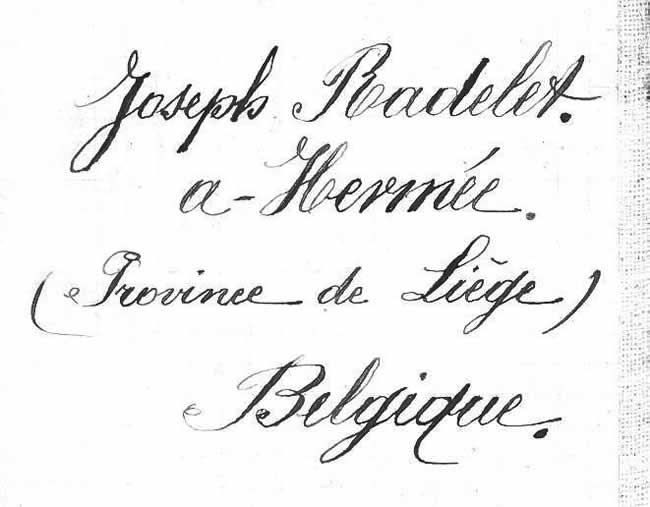 Joseph Radelet.
a - Hermée.
(Province de Liége)
Belgique.